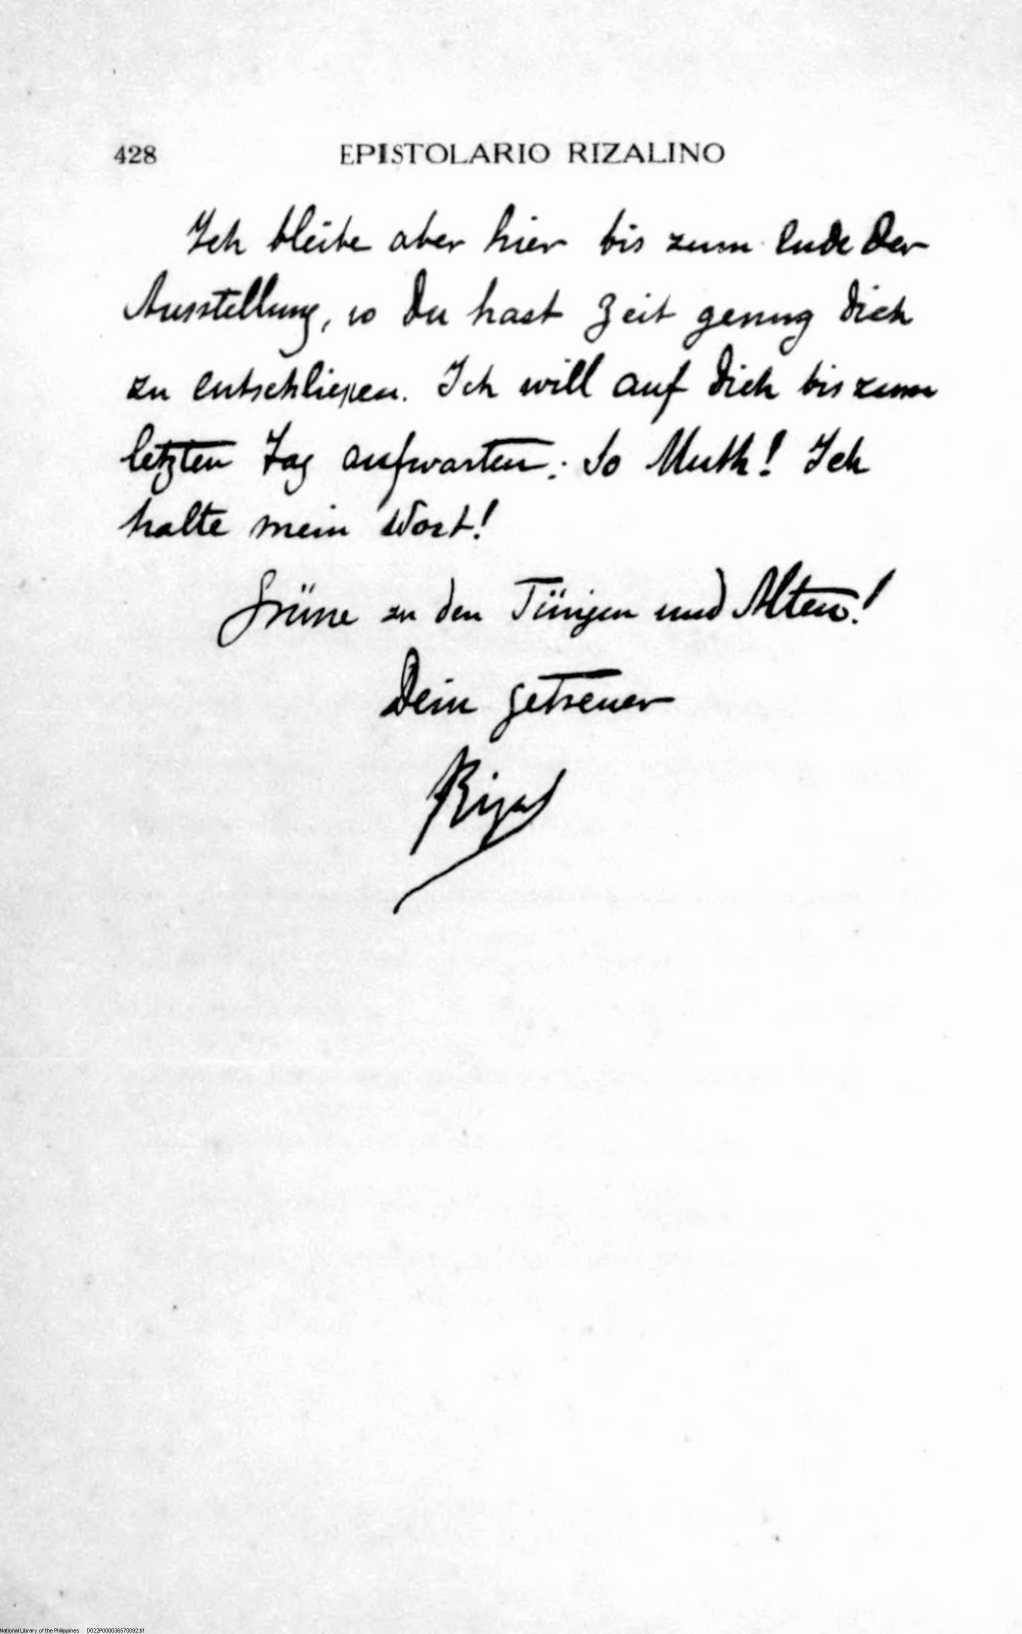 428 EPISTOLARIO RIZALINO
Ich bleibe aber hier bis zum Ende der
Ausstellung, so Du hast Zeit genug Dich
zu entschließen. Ich will auf Dich bis zum
letzten Tag aufwarten. So Muth! Ich
halte mein Wort!
Grüße zu den Jüngen und Alten!
Dein getreuer
Rizal
National Library of the Philippines